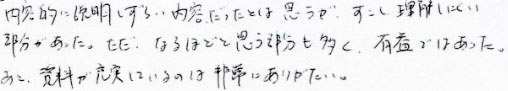 内容的に説明しずらい内容だったとは思うが、すこし理解しにくい
部分があった。ただ、なるほどと思う部分も多く、有益ではあった。
あと、資料が充実しているのは非常にありがたい。